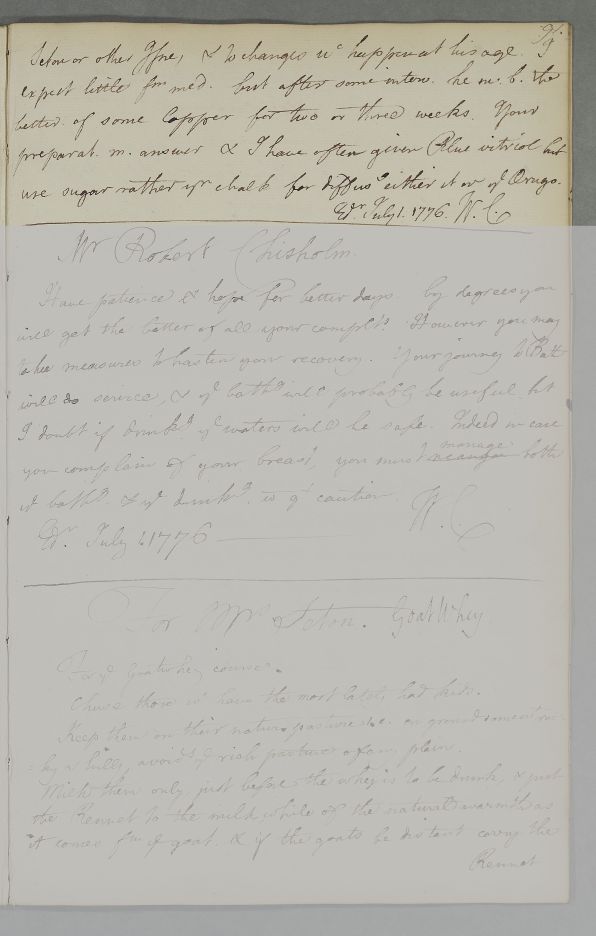 9
Seton or other Issue, & to changes wc happen at his age. I
expect little fm med. but after some interv. he m. b. the
better of some Copper for two or three weeks. Your
preparat. m. answer & I have often given Blue vitriol but
use sugar rather yn chalk for diffusg either it or ye Ærugo.
Edr. July 1. 1776. W. C.
Mr Robert Chisholm.
Have patience & hope for better days. by degrees you
will get the better of all your complts. However you may
take measures to hasten your recovery. Your journey to Bath
will do service, & ye bathg will probably be useful but
I doubt if drinkg ye waters will be safe. Indeed in case
you complain of your breast, you must manage both
ye bathg. & ye drinkg. wt gt caution.
W. C.
Edr. July 1. 1776
For Mrs Seton. Goat Whey.
For ye Goatwhey course.
Chuse those wc have the most lately had kids.
Keep them on their nature pasture i.e. on ground somewhat
hilly, avoidg ye rich pasture of any plain.
Milk them only just before the whey is to be drunk, & put
the Rennet to the milk while of the natural warmth as
it comes fm ye goat. & if the goats be distant carry the
Rennet